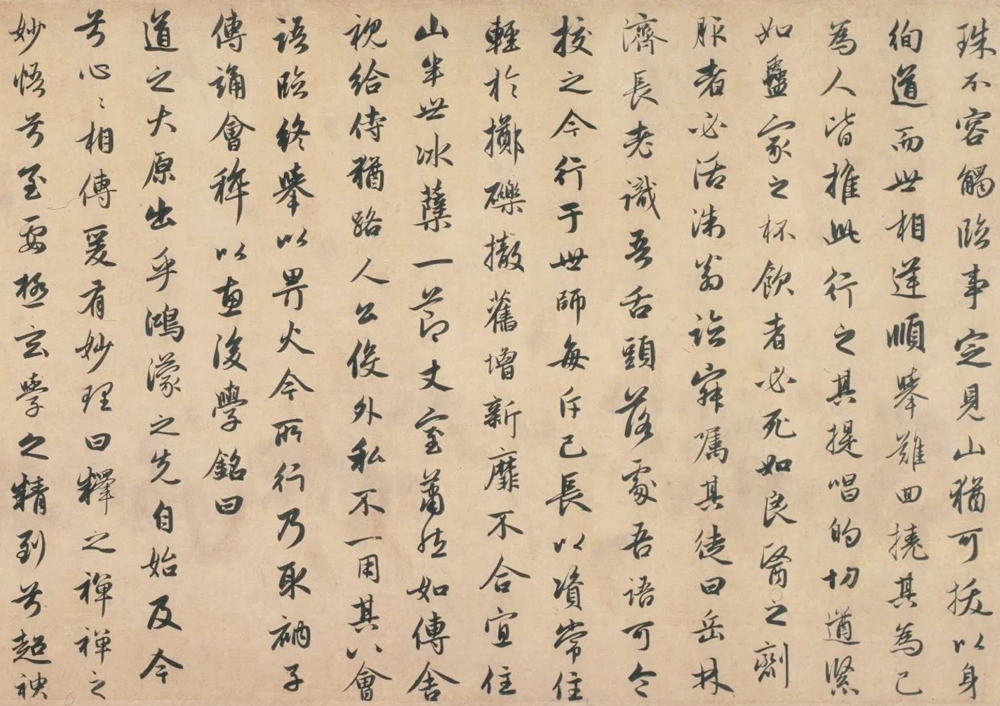 珠不容觸臨事定見山猶可拔以身
徇道而世相逆順舉難回撓其為己
為人皆推此行之其提唱的切遒緊
如蠱家之杯飲者必死如良醫之劑
服者必活洙翁詮寐囑其徒曰岳林
濟長老識吾舌頭落處吾語可令
挍之今行于世師每斥己長以資常住
輕於擲礫撤舊增新靡不合宜住
山半世冰蘗一節丈室蕭然如傳舍
視給侍猶路人公伇外私不一用其八會
語臨終舉以畀火今所行乃耴衲子
傳誦會稡以惠後學銘曰
道之大原出乎鴻濛之先自始及今
兮心〻相傳爰有妙理曰釋之禪禪之
妙悟兮至要極玄學之精到兮超